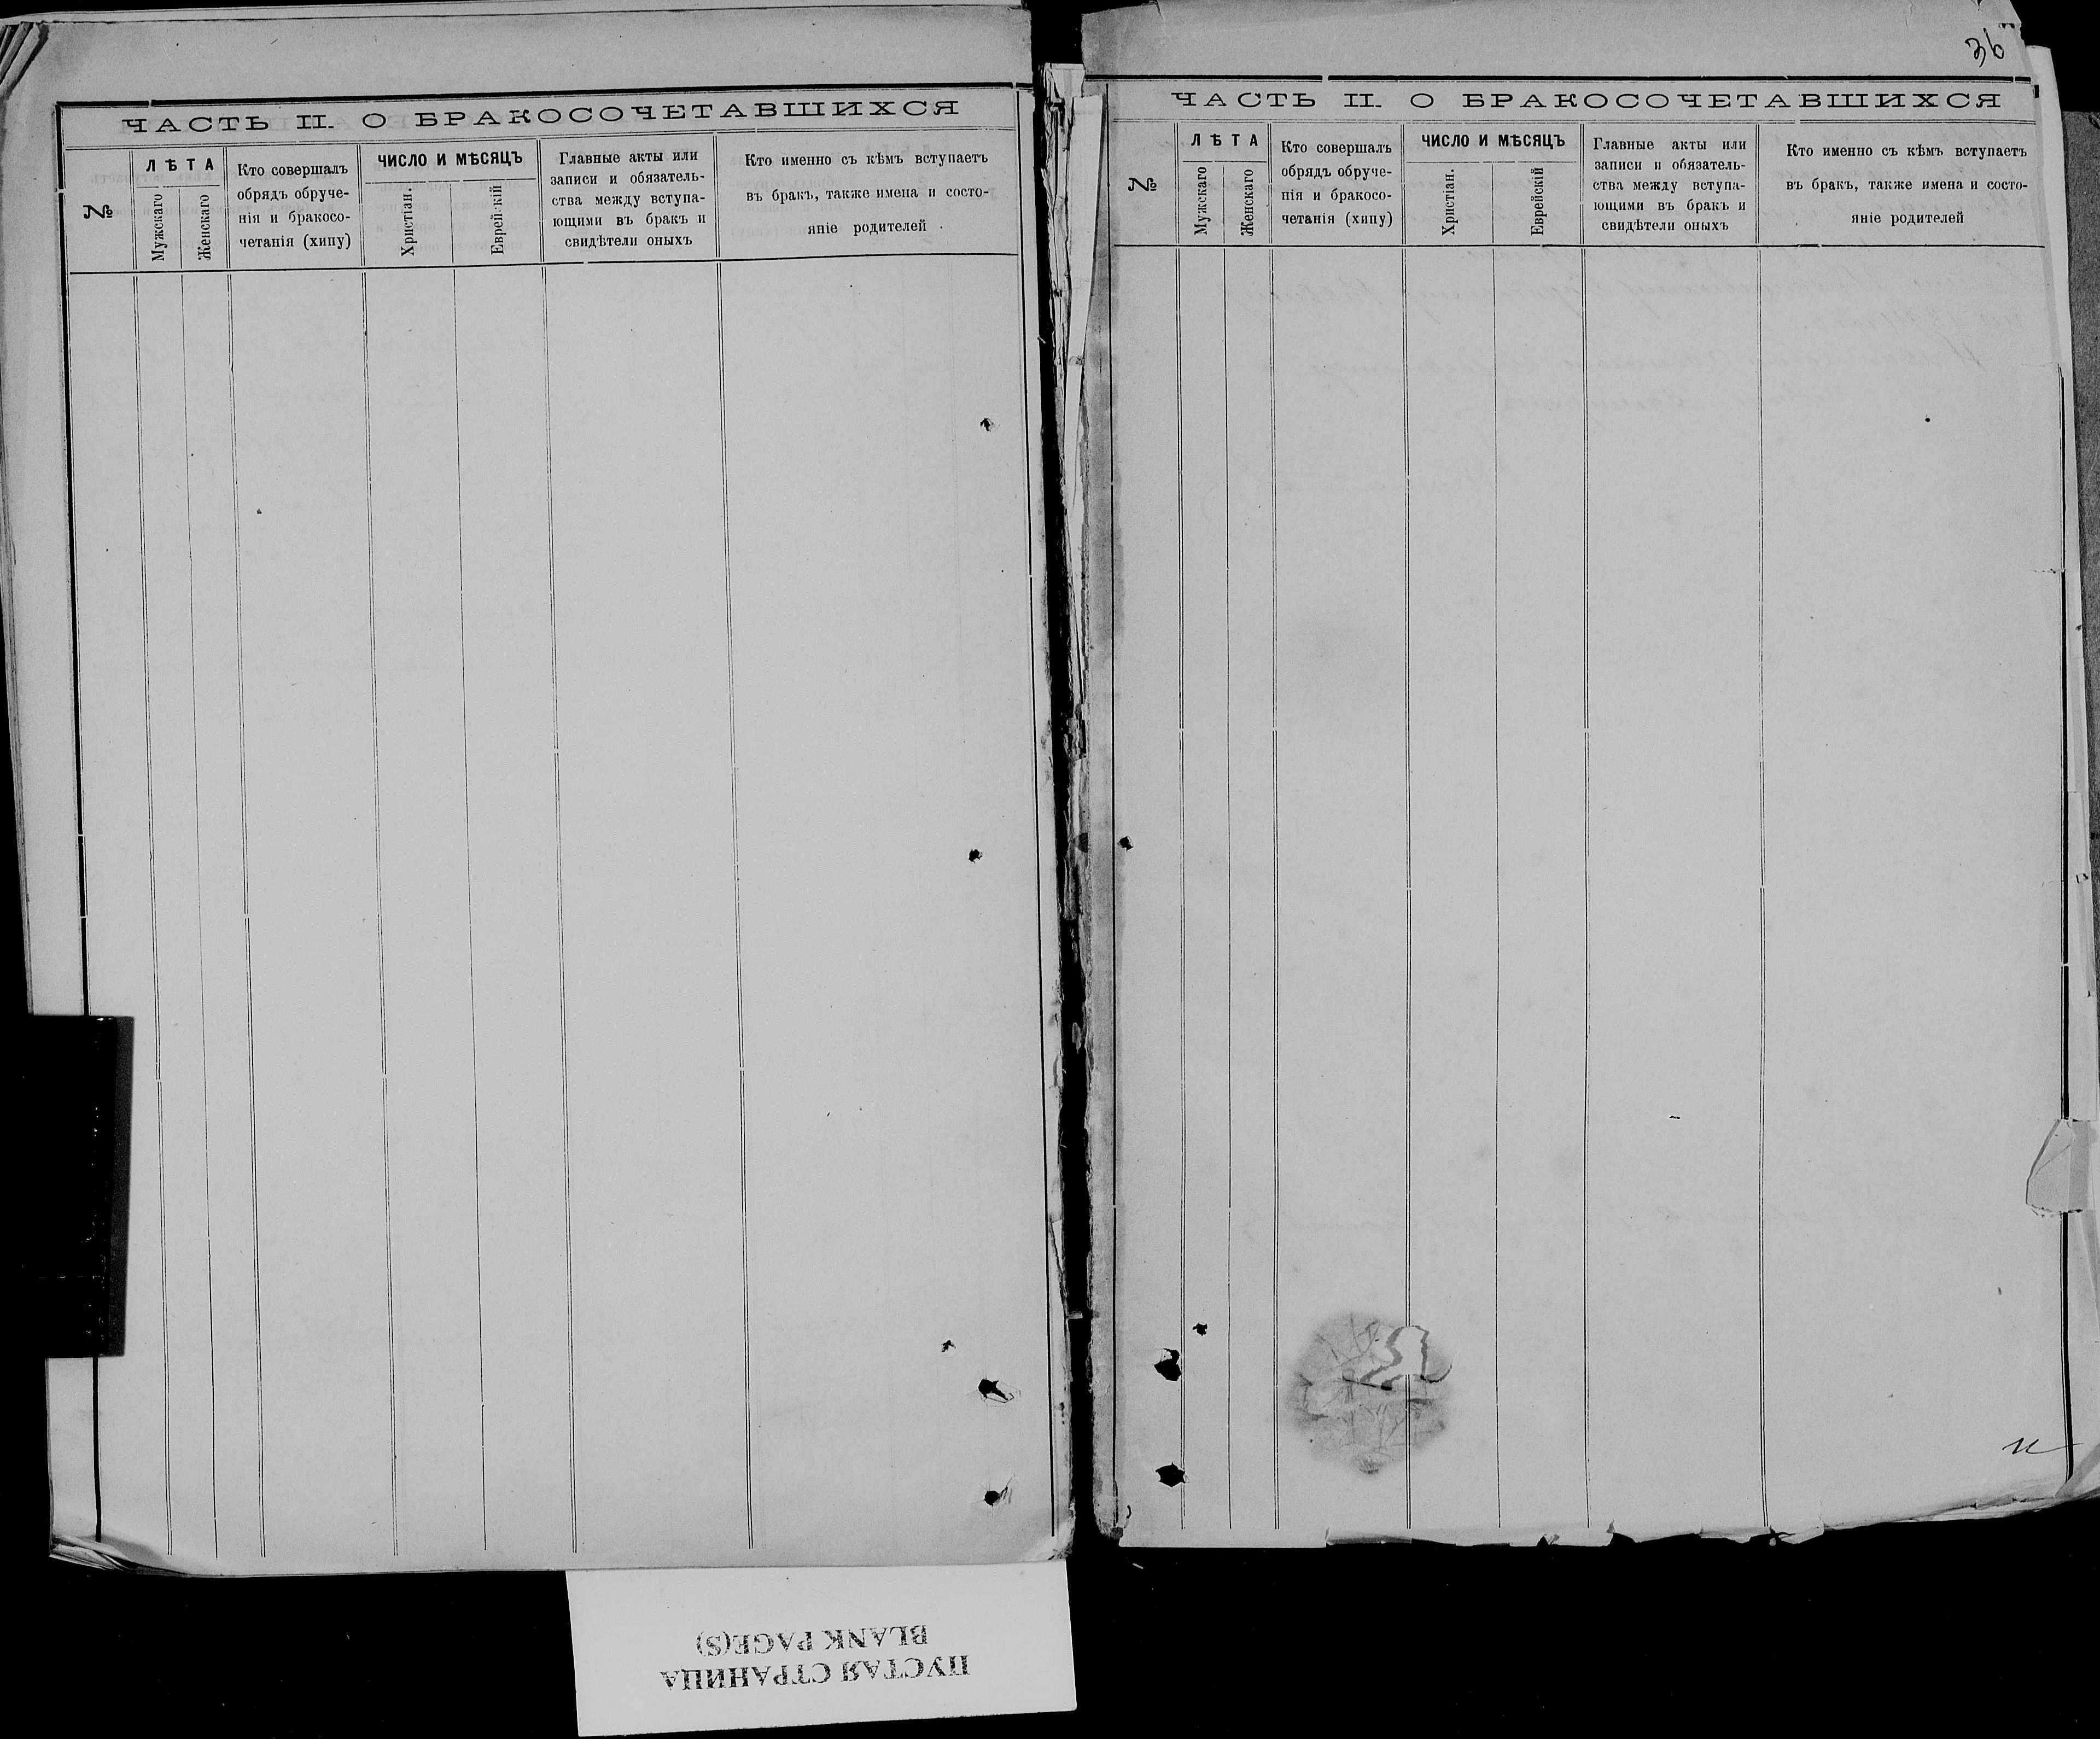 ЧАСТЬ II. О БРАКОСОЧЕТАВШИХСЯ
№
ЛѢТА
Мужскаго
Женскаго
Кто совершалъ
обрядъ обруче-
нія и бракосо-
четанія (хипу)
ЧИСЛО И МѢСЯЦЪ
Христіан.
Еврей кій
Главные акты или
записи и обязатель-
ства между вступа-
ющими въ бракъ и
свидѣтели оныхъ
Кто именно съ кѣмъ вступаетъ
въ бракъ, также имена и состо-
яніе родителей
36
ЧАСТЬ II. О БРАКОСОЧЕТАВШИХСЯ
№
ЛѢТА
Мужскаго
Женскаго
Кто совершалъ
обрядъ обруче-
нія и бракосо-
четанія (хипу)
ЧИСЛО И МѢСЯЦЪ
Христіан.
Еврейскій
Главные акты или
записи и обязатель-
ства между вступа-
ющими въ бракъ и
свидѣтели оныхъ
Кто именно съ кѣмъ вступаетъ
въ бракъ, также имена и состо-
яніе родителей
ПУСТАЯ СТРАНИЦА
BLANK PAGE(S)